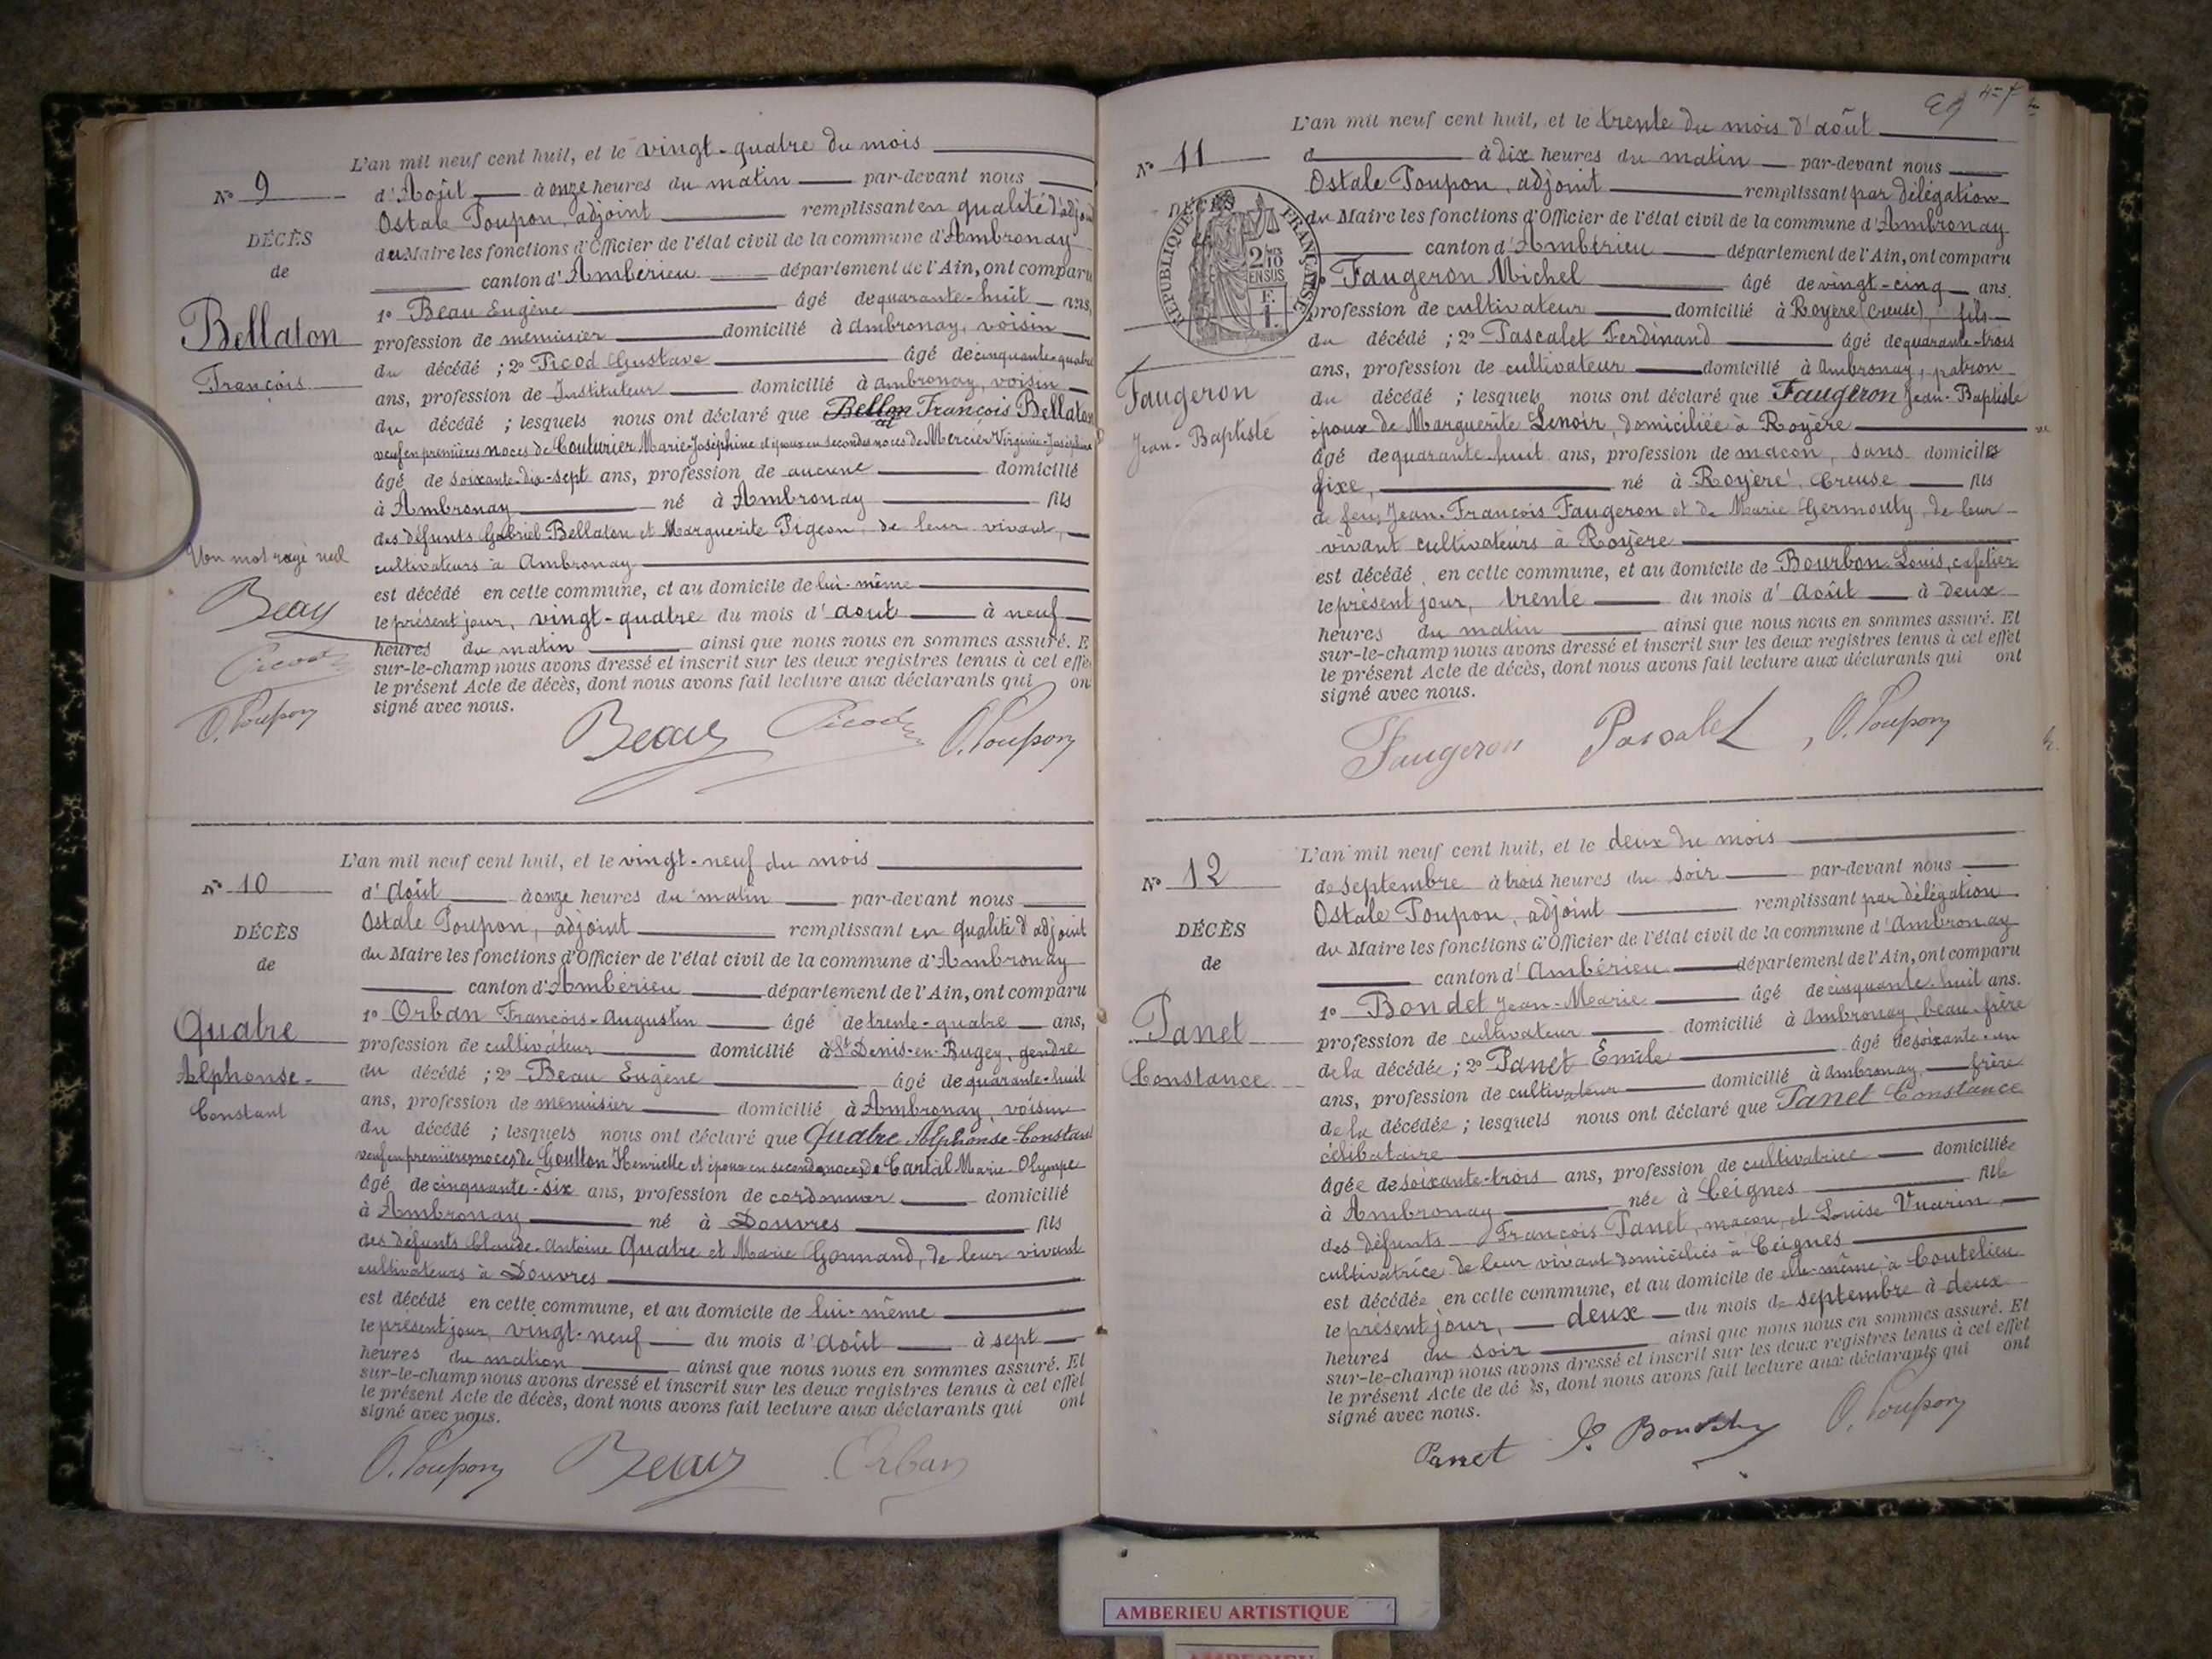 L'an mil neuf cent huit, et le vingt-quatre du mois
N° 9
d'Août à onze heures du matin par-devant nous
Ostale Poupon, adjoint remplissant en qualité d'adjoint
DÉCÈS
du Maire les fonctions d'Officier de l'état civil de la commune d'Ambronay
de
canton d'Ambérieu département de l'Ain, ont comparu
1° Beau Eugène âgé de quarante-huit ans,
Bellaton
profession de menuisier domicilié à Ambronay, voisin
François
du décédé ; 2° Picod Gustave âgé de cinquante-quatre
ans, profession de Instituteur domicilié à Ambronay, voisin
du décédé ; lesquels nous ont déclaré que François Bellaton
veuf en premières noces de Couturier Marie-Joséphine et époux en secondes noces de Mercier Virginie-Joséphine
âgé de soixante-dix-sept ans, profession de aucune domicilié
à Ambronay né à Ambronay fils
des défunts Gabriel Bellaton et Marguerite Pigeon, de leur vivant,
Un mot rayé nul
cultivateurs à Ambronay
est décédé en cette commune, et au domicile de lui-même
Beau
le présent jour, vingt-quatre du mois d'août à neuf
Picod
heures du matin ainsi que nous nous en sommes assuré. E
sur-le-champ nous avons dressé et inscrit sur les deux registres tenus à cet effe
le présent Acte de décès, dont nous avons fait lecture aux déclarants qui on
O. Poupon
signé avec nous.
Beau Picod O. Poupon
L'an mil neuf cent huit, et le vingt-neuf du mois
N° 10
d'Août à onze heures du matin par-devant nous
Ostale Poupon, adjoint remplissant en qualité d'adjoint
DÉCÈS
du Maire les fonctions d'Officier de l'état civil de la commune d'Ambronay
de
canton d'Ambérieu département de l'Ain, ont comparu
1° Orban François-Augustin âgé de trente-quatre ans,
Quatre
profession de cultivateur domicilié à St Denis-en-Bugey, gendre
Alphonse-
du décédé ; 2° Beau Eugène âgé de quarante-huit
Constant
ans, profession de menuisier domicilié à Ambronay, voisin
du décédé ; lesquels nous ont déclaré que Quatre Alphonse-Constant
veuf en premières noces de Goutton Henriette et époux en secondes noces de Cantal Marie-Olympe
âgé de cinquante-six ans, profession de cordonnier domicilié
à Ambronay né à Douvres fils
des défunts Claude-Antoine Quatre et Marie Gonnand, de leur vivant
cultivateurs à Douvres
est décédé en cette commune, et au domicile de lui-même
le présent jour, vingt-neuf du mois d'août à sept
heures du mation ainsi que nous nous en sommes assuré. Et
sur-le-champ nous avons dressé et inscrit sur les deux registres tenus à cet effet
le présent Acte de décès, dont nous avons fait lecture aux déclarants qui ont
signé avec nous.
O. Poupon Beau Orban
L'an mil neuf cent huit, et le trente du mois d'août
N° 11
d à dix heures du matin par-devant nous
Ostale Poupon, adjoint remplissant par délégation
DÉCÈS
du Maire les fonctions d'Officier de l'état civil de la commune d'Ambronay
canton d'Ambérieu département de l'Ain, ont comparu
RÉPUBLIQUE FRANÇAISE
2/10
EN SUS
Faugeron Michel âgé de vingt-cinq ans.
profession de cultivateur domicilié à Royère (Creuse), fils
du décédé ; 2° Pascalet Ferdinand âgé de quarante-trois
ans, profession de cultivateur domicilié à Ambronay, patron
Faugeron
du décédé ; lesquels nous ont déclaré que Faugeron Jean-Baptiste
Jean-Baptiste
époux de Marguerite Lenoir, domiciliée à Royère
âgé de quarante-huit ans, profession de maçon, sans domicile
fixe, né à Royère, Creuse fils
de feus Jean-François Faugeron et de Marie Germouty, de leur
vivant cultivateurs à Royère
est décédé en cette commune, et au domicile de Bourbon Louis, cafetier
le présent jour, trente du mois d'Août à deux
heures du matin ainsi que nous nous en sommes assuré. Et
sur-le-champ nous avons dressé et inscrit sur les deux registres tenus à cet effet
le présent Acte de décès, dont nous avons fait lecture aux déclarants qui ont
signé avec nous.
Faugeron Pascalet O. Poupon
L'an mil neuf cent huit, et le deux du mois
N° 12
de septembre à trois heures du soir par-devant nous
Ostale Poupon, adjoint remplissant par délégation
DÉCÈS
du Maire les fonctions d'Officier de l'état civil de la commune d'Ambronay
de
canton d'Ambérieu département de l'Ain, ont comparu
1° Bondet Jean-Marie âgé de cinquante-huit ans.
Panet
profession de cultivateur domicilié à Ambronay, beau-frère
Constance
de la décédée ; 2° Panet Émile âgé de soixante-un
ans, profession de cultivateur domicilié à Ambronay, frère
de la décédée ; lesquels nous ont déclaré que Panet Constance
célibataire
âgée de soixante-trois ans, profession de cultivatrice domiciliée
à Ambronay née à Ceignes fille
des défunts François Panet, maçon, et Louise Vuarin,
cultivatrice de leur vivant domiciliés à Ceignes
est décédée en cette commune, et au domicile de elle-même, à Coutelieu
le présent jour, deux du mois de septembre à deux
heures du soir ainsi que nous nous en sommes assuré. Et
sur-le-champ nous avons dressé et inscrit sur les deux registres tenus à cet effet
le présent Acte de dé ès, dont nous avons fait lecture aux déclarants qui ont
signé avec nous.
Panet O. Poupon
AMBERIEU ARTISTIQUE
AMBERIEU